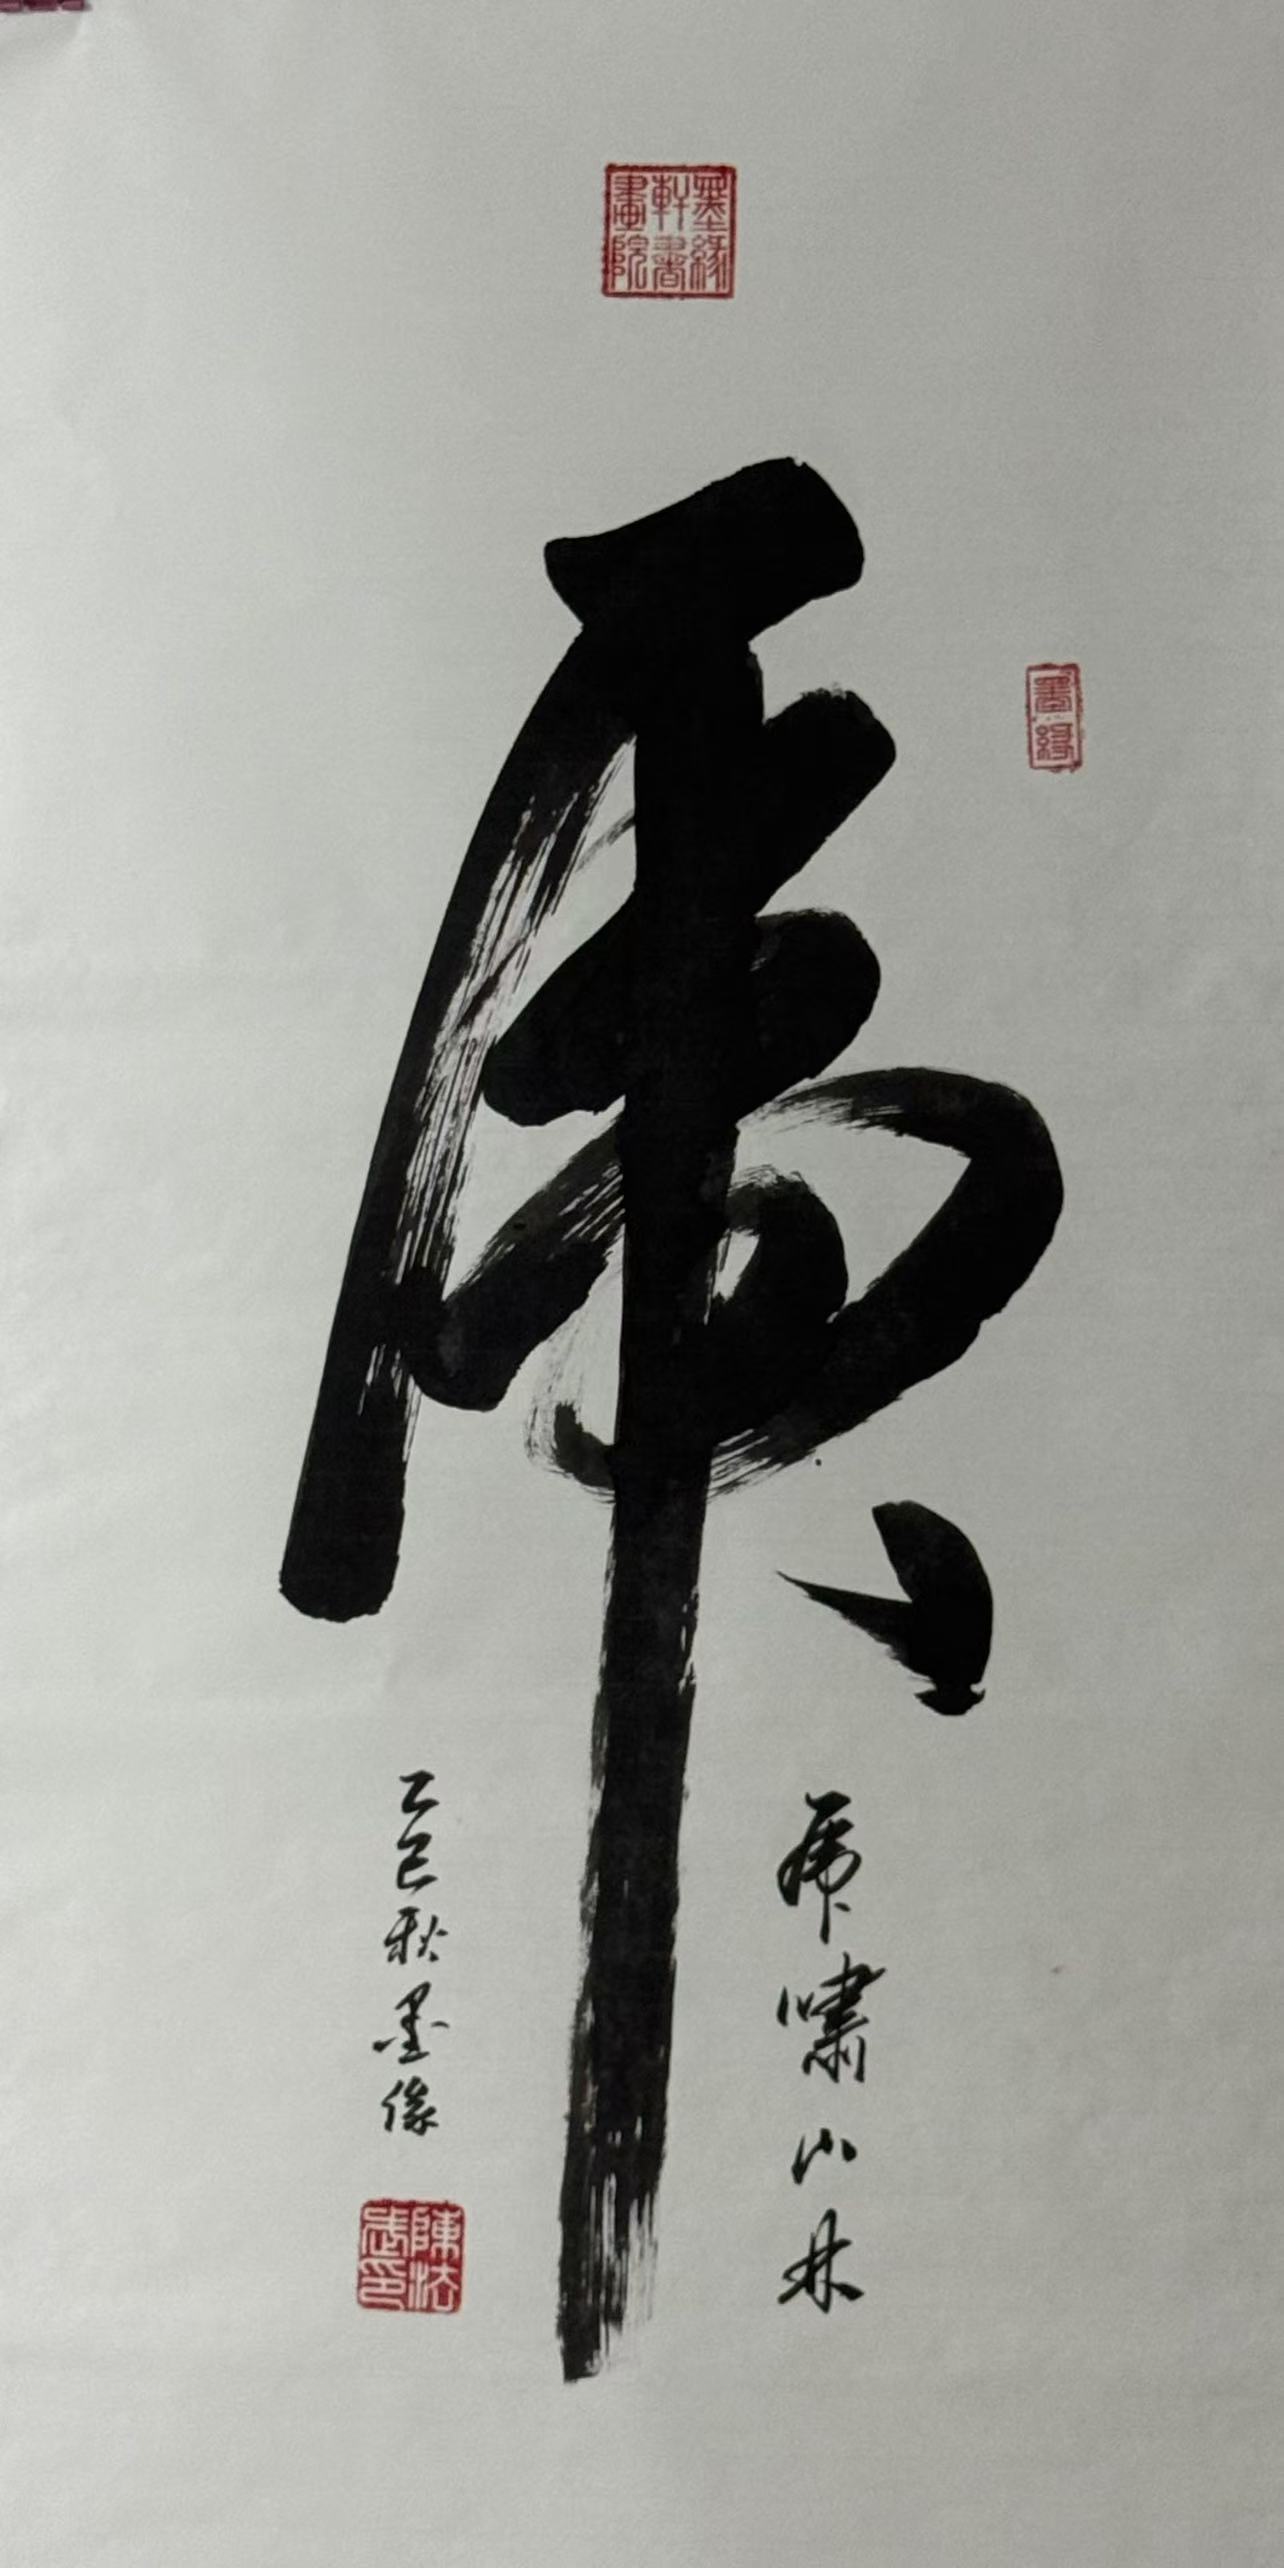 墨緣軒書畫院
虎
墨緣
虎嘯山林
乙巳秋墨缘
陳法武印